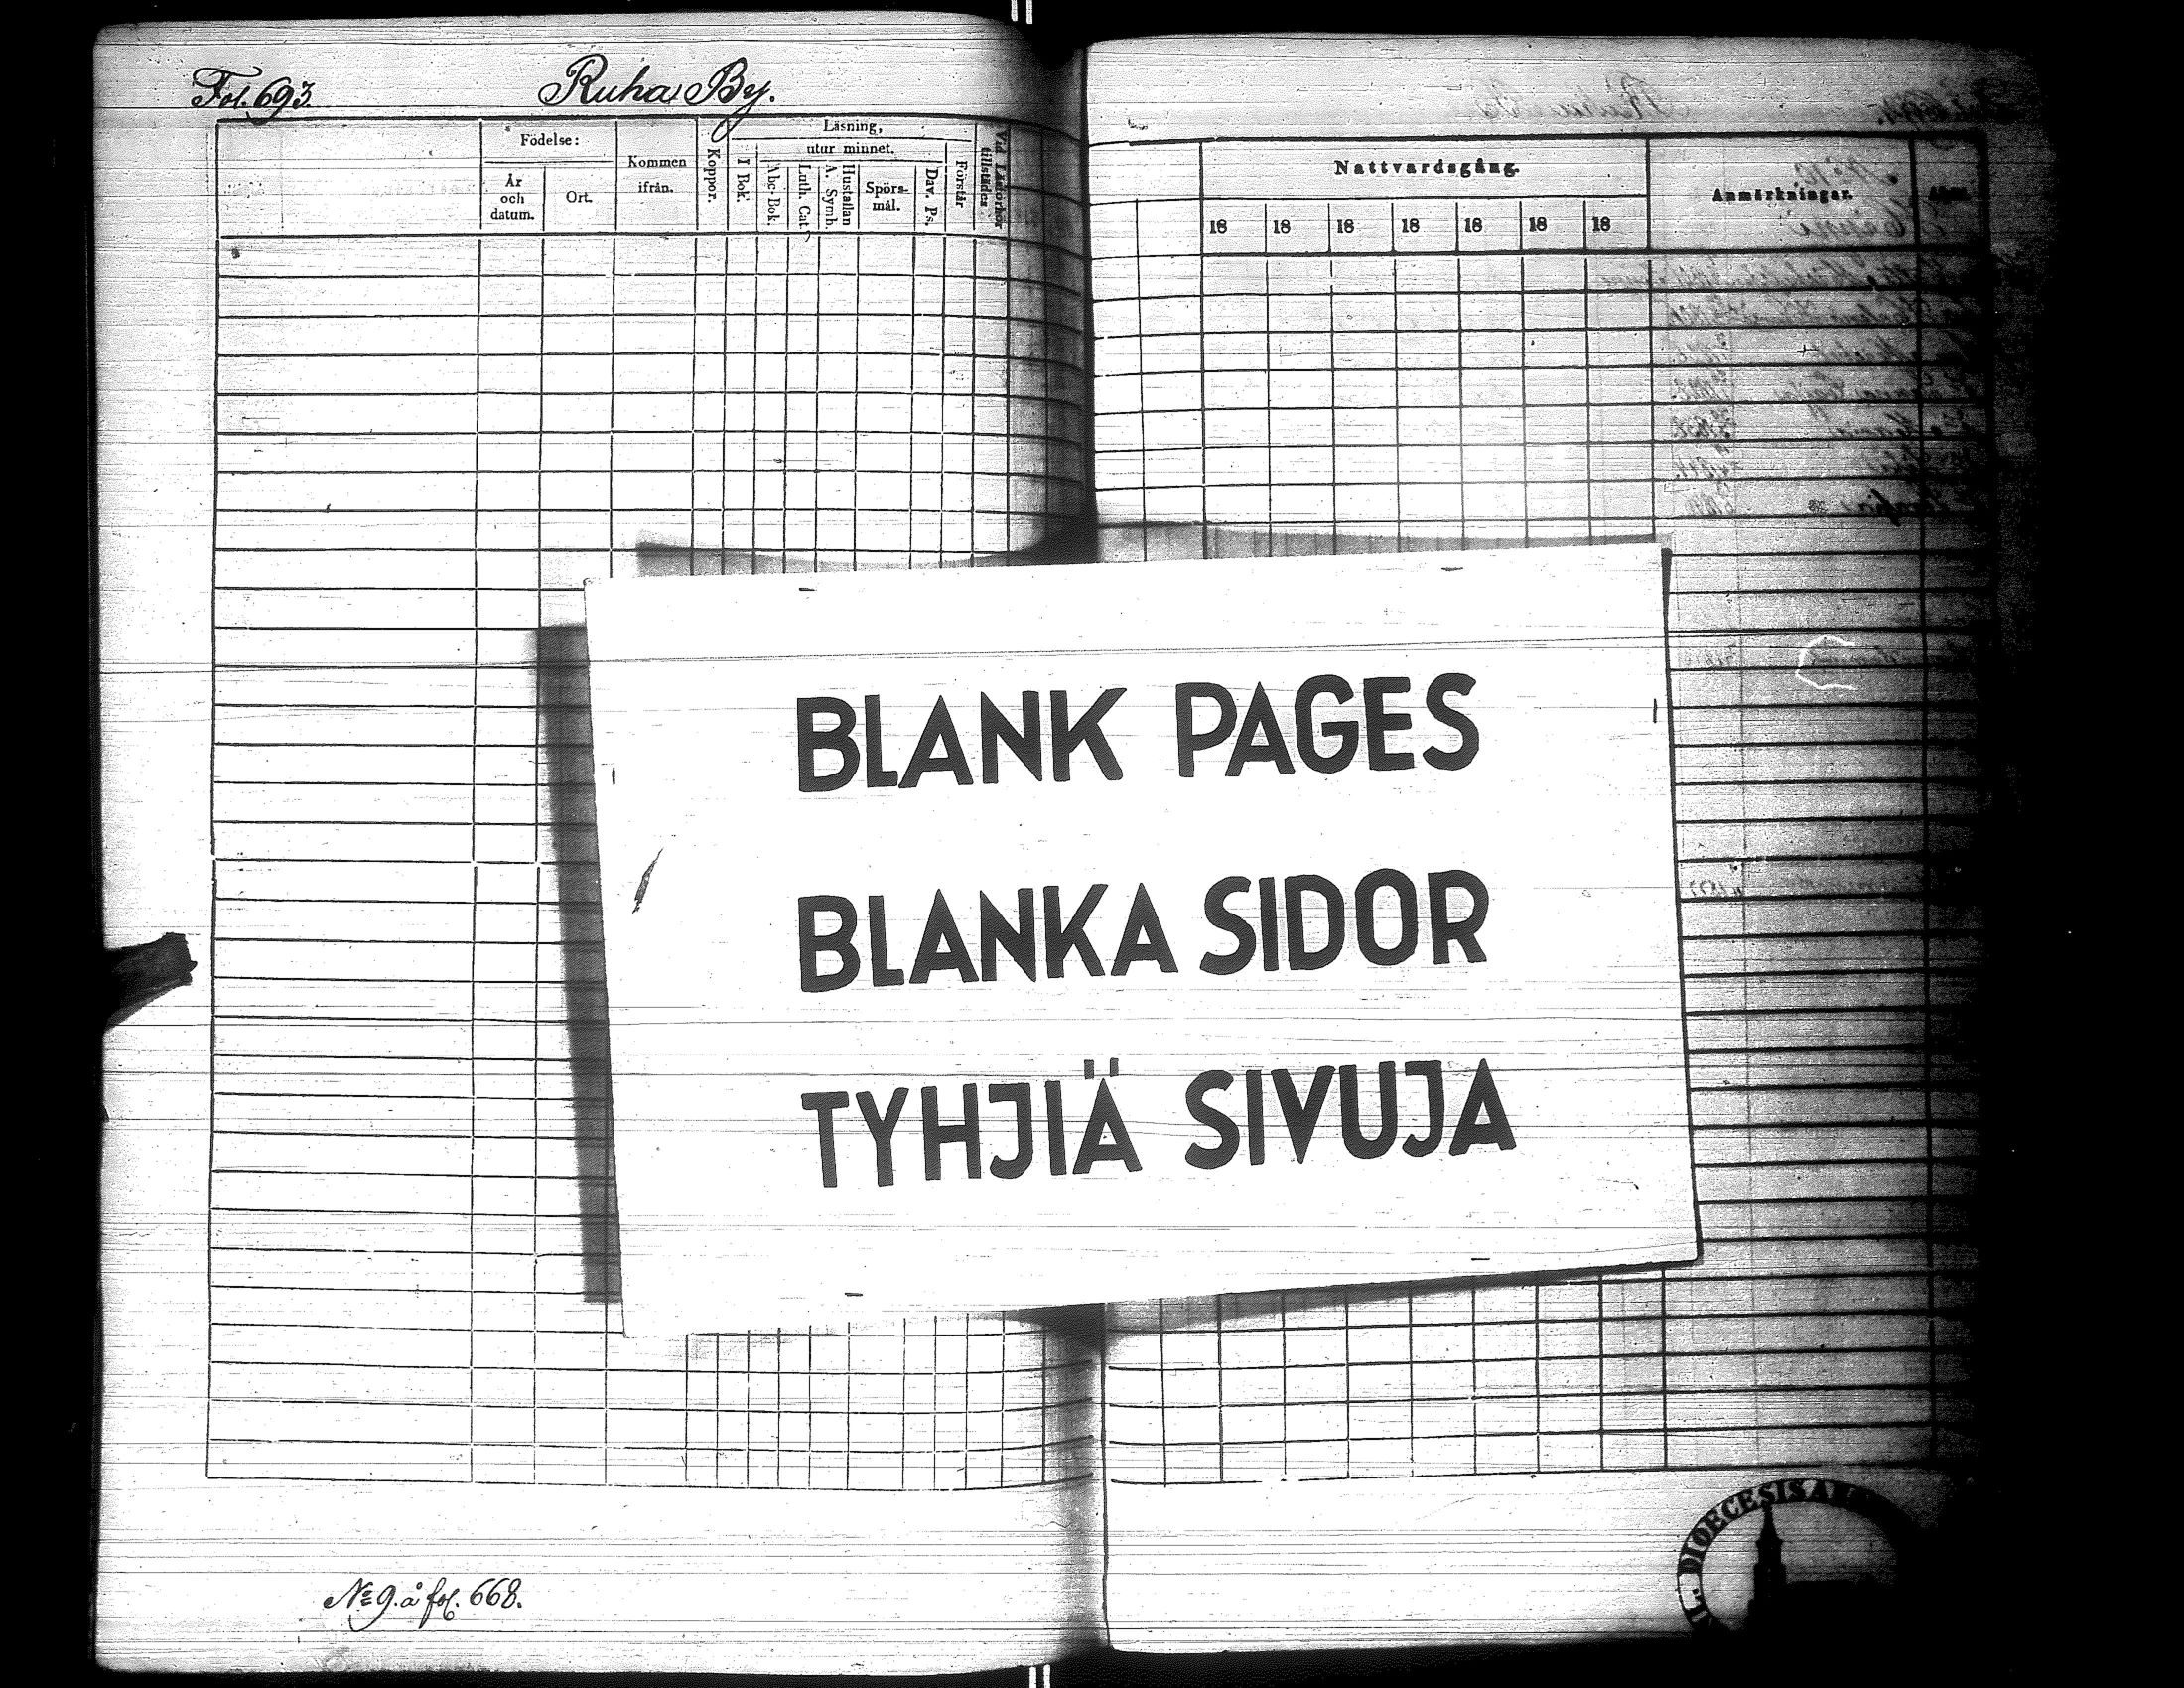 Fol. 693.
Ruha By.
Födelse:
År och datum.
Ort.
Kommen ifrån.
Koppor.
Läsning,
utur minnet.
I Bok.
Abc-Bok.
Luth. Cat.
A. Symb.
Hustaflan
Spörs-
mål.
Dav. Ps.
Förstår
Vid Läsförhör tillstädes
Nattvardsgång.
18 18 18 18 18 18 18
Anmärkningar.
BLANK PAGES
BLANKA SIDOR
TYHJIÄ SIVUJA
No 9. å fol. 668.
L. DIOECESIS